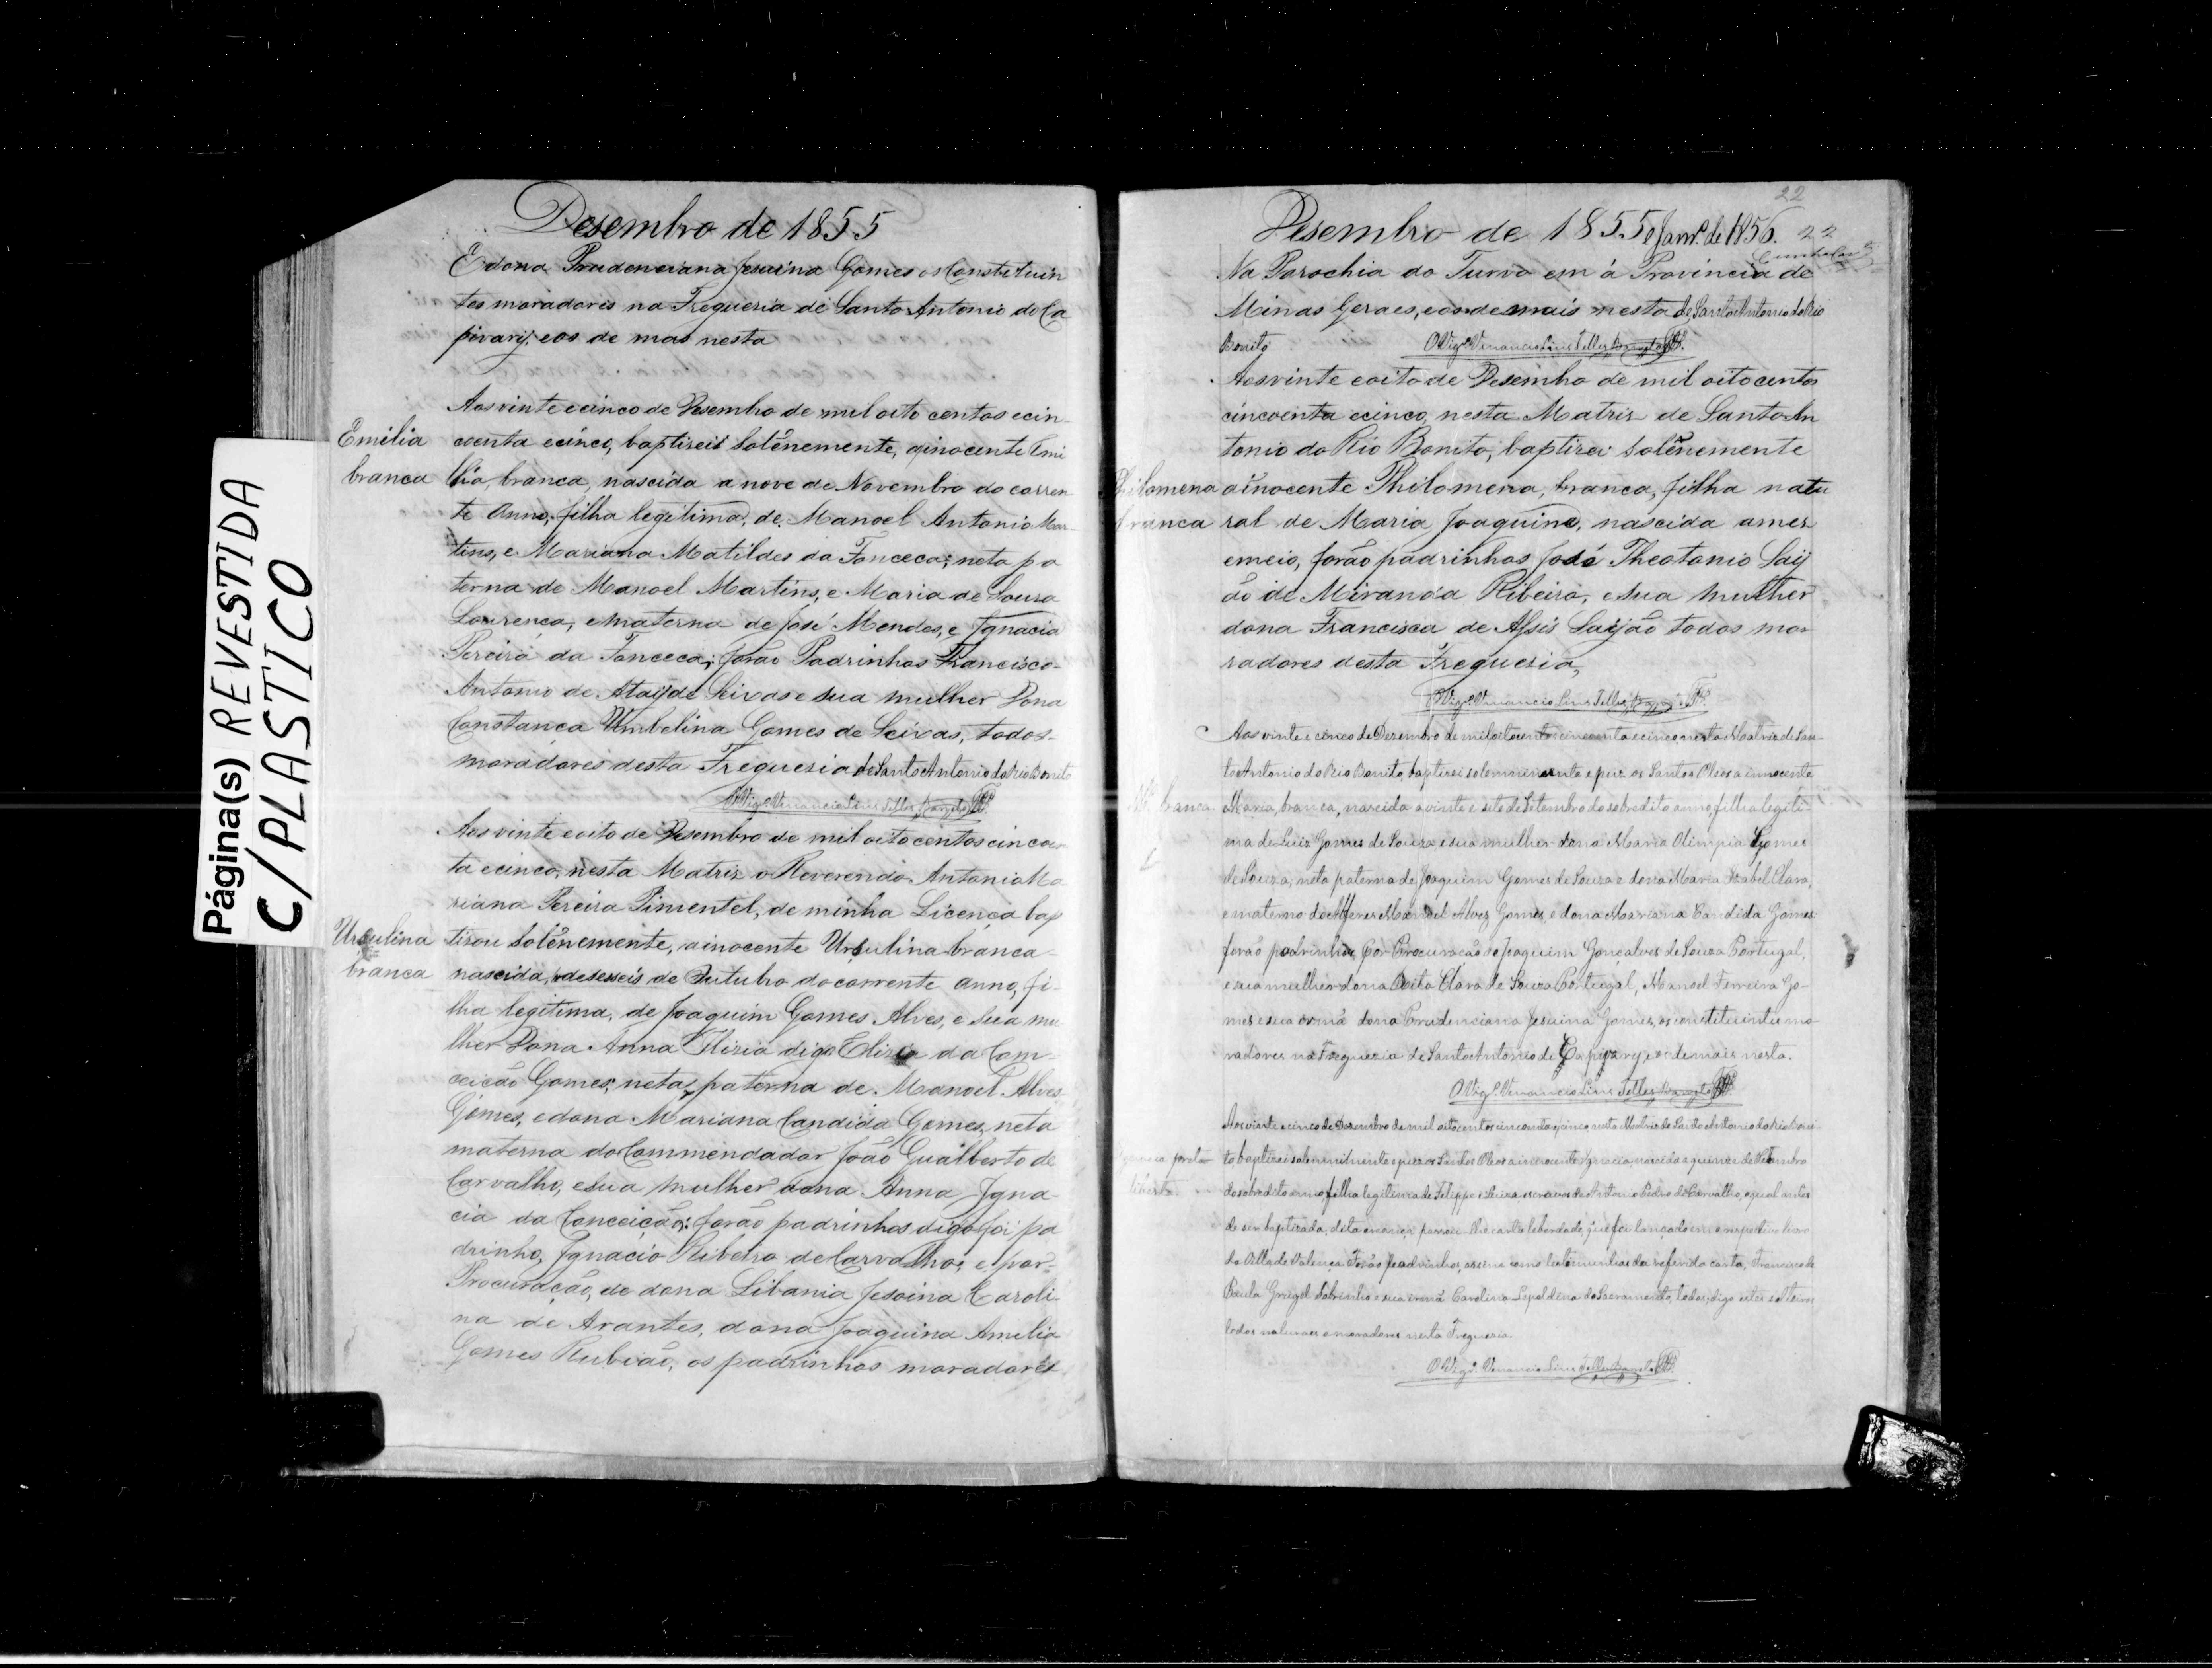 Página(s) REVESTIDA
C/PLASTICO
Desembro de 1855
E dona Prudenciana Jesuina Gomes os Constituin
tes moradores na Freguesia de Santo Antonio do Ca
pivary, eos de mas nesta
Aos vinte e cinco de Desembro de mil oito centos ecin-
Emilia
coenta ecinco, baptiseis solênemente, a inocente Emi
branca
lia, branca, nascida a nove de Novembro do corren
te Anno, filha legitima, de Manoel Antonio Mar-
tins, e Mariana Matildes da Fonceca; neta pa
terna de Manoel Martins, e Maria de Sousa
Lourença, e materna de José Mendes, e Ignacia
Pereira da Fonceca; forão Padrinhos Francisco-
Antonio de Atayde Seixas e sua mulher Dona
Constança Umbelina Gomes de Seixas, todos-
moradores desta Freguesia de Santo Antonio do Rio Bonito
O Vigº Venancio Lins Telles Barreto
Aos vinte eoito de Desembro de mil oitocentos cincoen
ta ecinco, nesta Matriz o Reverendo Antonio Ma
riana Pereira Pimentel, de minha Licença bap
Ursulina
tisou solênemente, a inocente Ursulina branca-
branca
nascida, adesesseis de Outubro do corrente anno, fi-
lha legitima, de Joaquim Gomes Alves, e sua mu
lher Dona Anna Elisia digo Elisia da Com-
ceição Gomes, neta paterna de Manoel Alves
Gomes, e dona Mariana Candida Gomes, neta
materna do Commendador João Gualberto de
Carvalho, e sua mulher dona Anna Igna-
cia da Conceição: forão padrinhos digo foi pa
drinho, Ignacio Ribeiro de Carvalho, e por-
Procuração, de dona Libania Jesoina Caroli-
na de Arantes, dona Joaquina Amelia
Gomes Rubião, os padrinhos moradores
22
Desembro de 1855 e Janrº de 1856. 22
Na Parochia do Turvo em à Provincia de
Minas Geraes, eos de mais nesta de Santo Antonio do Rio
Bonito O Vigº Venancio Lins Telles Barreto
Aos vinte eoito de Desembro de mil oitocentos
cincoenta ecinco, nesta Matris de Santo An
tonio do Rio Bonito, baptisei solênemente
Philomena
a inocente Philomena, branca, filha natu
branca
ral de Maria Joaquina, nascida a mes
emeio, forão padrinhos José Theotonio Saij
ão de Miranda Ribeiro, e sua mulher
dona Francisca de Assis Saijão todos mo-
radores desta Freguesia,
O Vigº Venancio Lins Telles Barreto
Aos vinte e cinco de Dezembro de mil oitocentos cincoenta e cinco, nesta Matriz de San-
to Antonio do Rio Bonito, baptisei solemnemente e puz os Santos Oleos a innocente
branca
Maria, branca, nascida a vinte e sete de Setembro do sobredito anno, filha legiti-
ma de Luiz Gomes de Souza e sua mulher dona Maria Olimpia Gomes
de Souza, neta paterna de Joaquim Gomes de Souza e dona Maria Izabel Clara,
e materna do Alferes Manoel Alves Gomes, e dona Mariana Candida Gomes:
forão padrinhos, por Procuração de Joaquim Gonçalves de Souza Portugal,
e sua mulher dona Rita Clara de Souza Portugal, Manoel Ferreira Go-
mes e sua irmã dona Prudenciana Jesuina Gomes, os constituintes mo-
radores na Freguezia de Santo Antonio de Capivary, e os demais nesta.
O Vigº Venancio Lins Telles Barreto
Aos vinte e cinco de Dezembro de mil oitocentos cincoenta e cinco, nesta Matriz de Santo Antonio do Rio Boni-
to baptizei solemnemente e puz os Santos Oleos a innocente Ignacia, nascida a quinze de Setembro
preta
liberta
do sobredito anno, filha legitima de Felippe e Luiza escravos de Antonio Pedro de Carvalho, o qual antes
de ser baptizada, dita criança, passou-lhe carta de liberdade, que foi lançada em o respectivo livro
da Villa de Valença. Forão padrinhos, assim como testemunhas da referida carta, Francisco de
Paula Gurgel Sobrinho e sua irmã Carolina Lepoldina do Sacramento, todos, digo estes solteiros
todos naturaes e moradores nesta Freguezia.
O Vigº Venancio Lins Telles Barreto